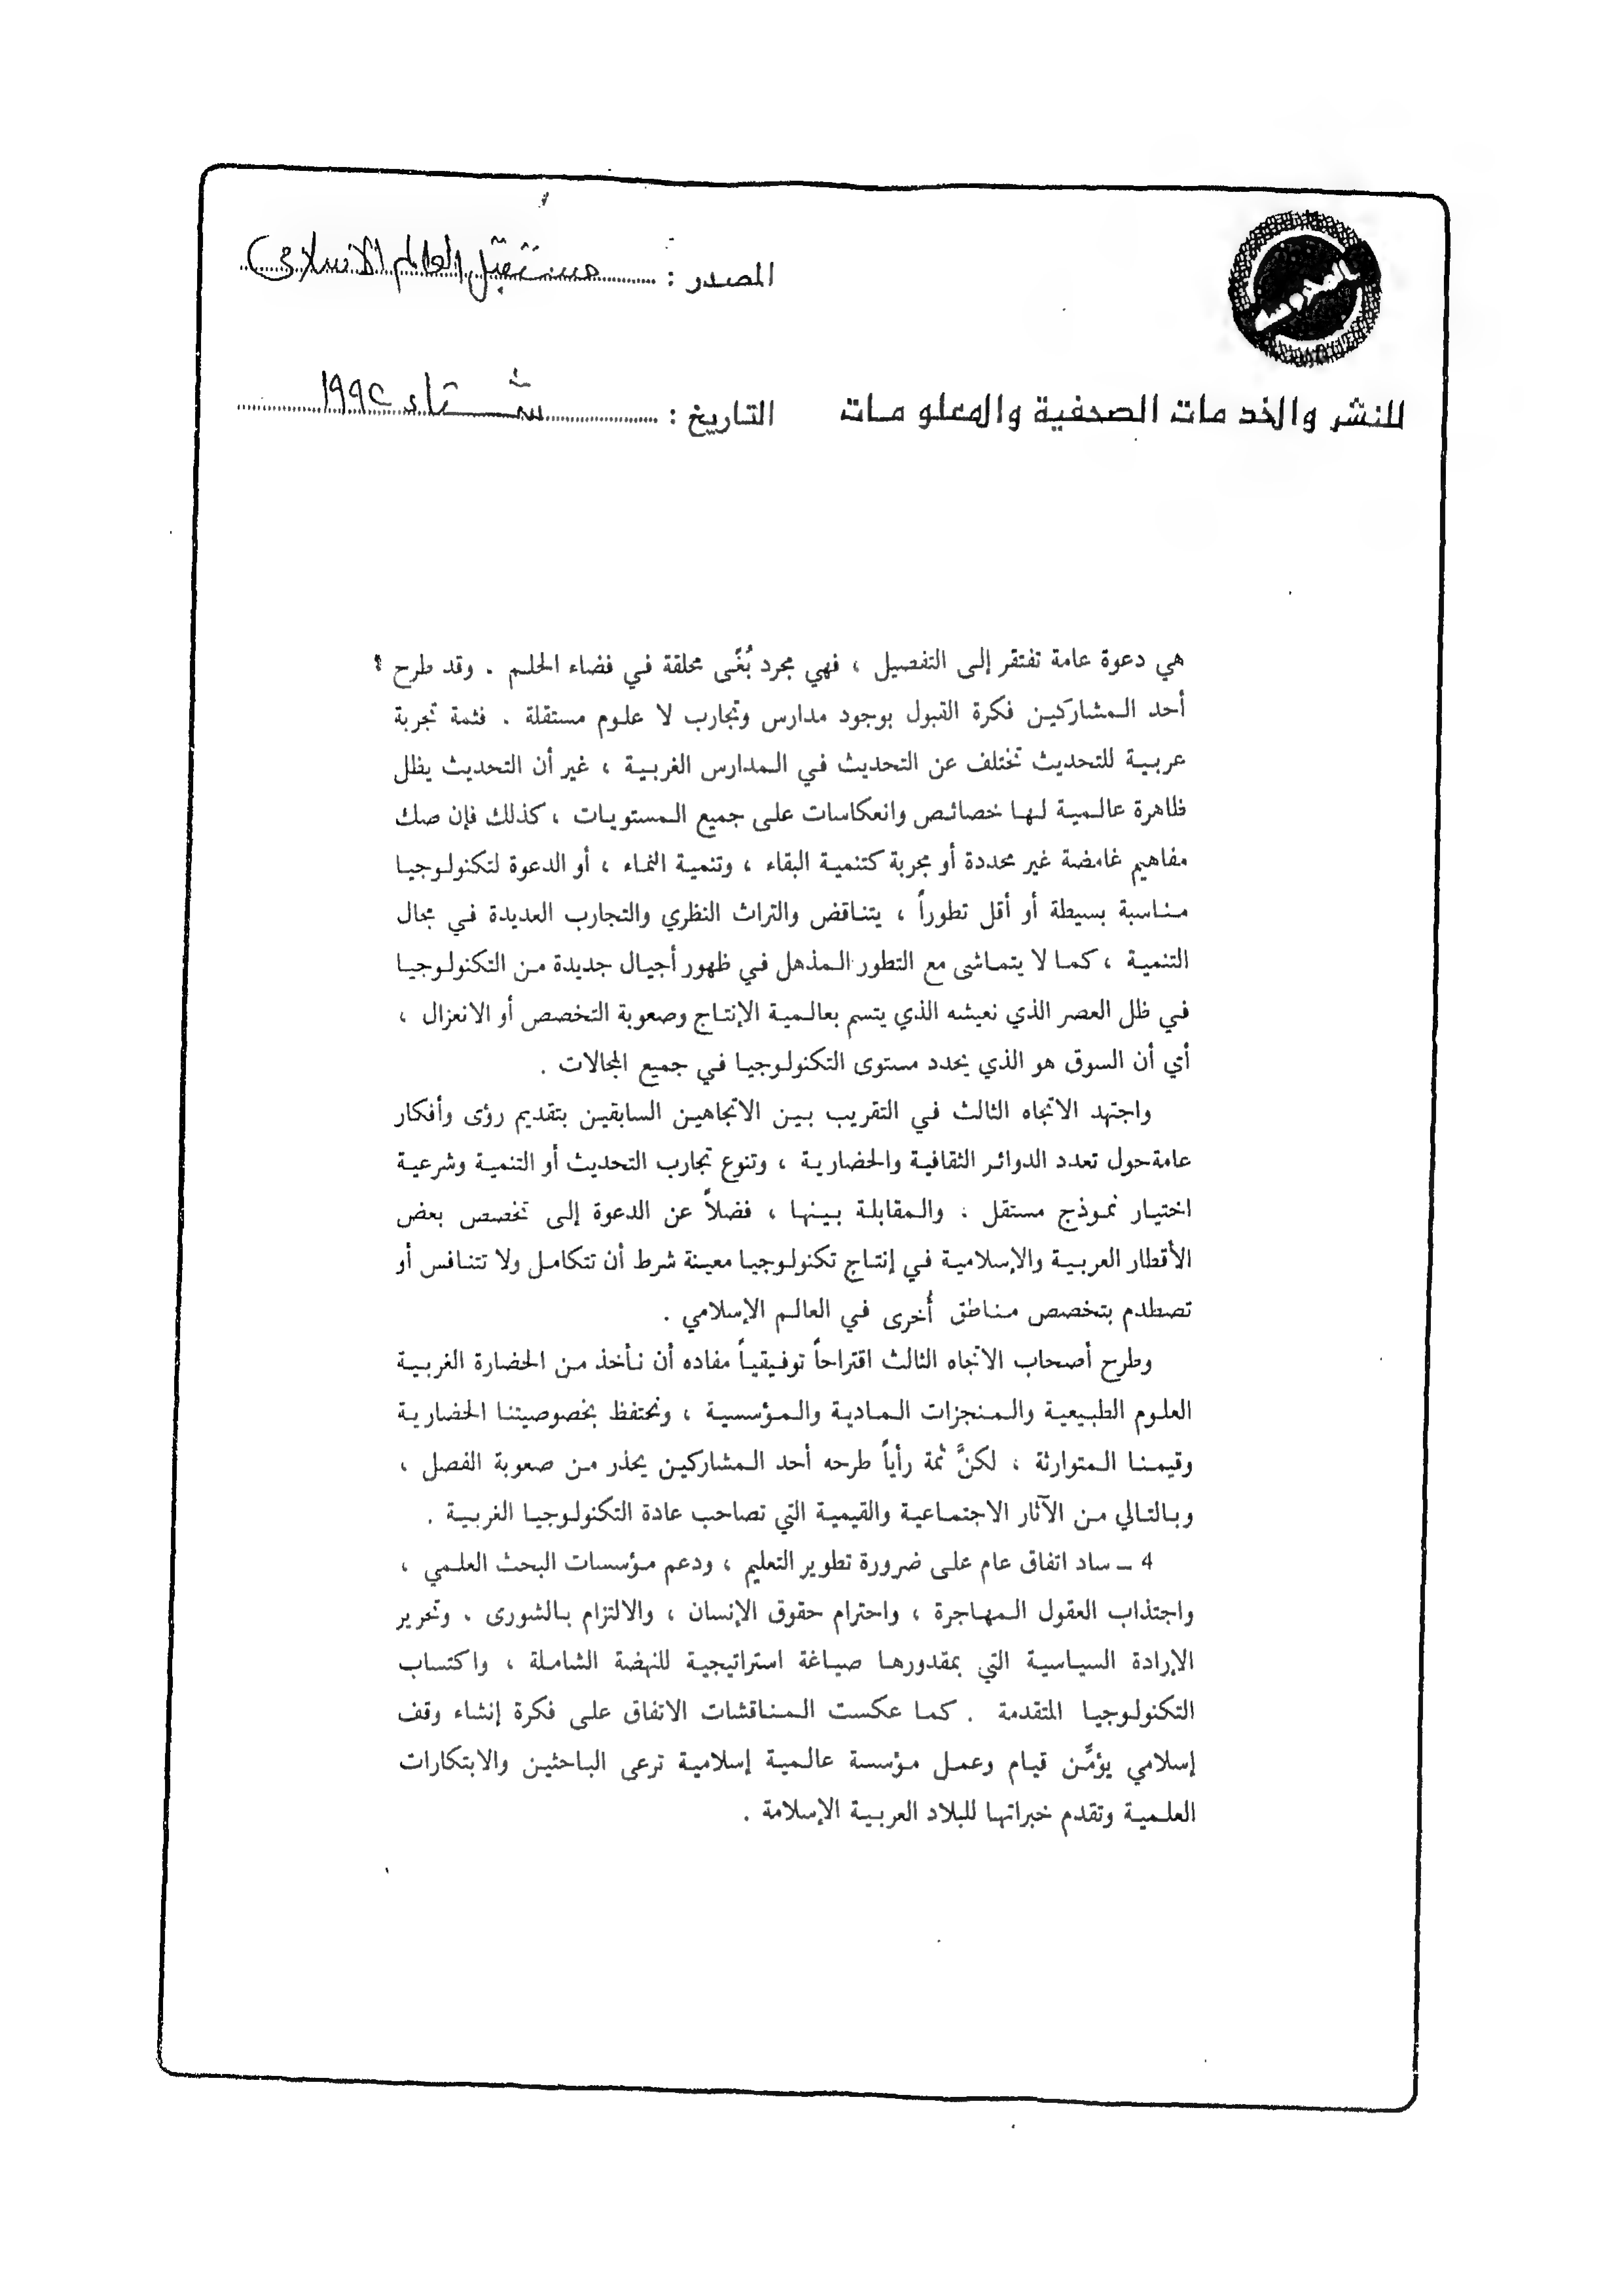 المصدر : مستقبل العالم الاسلامى
للنشر والخدمات الصحفية والمعلومات
التاريخ : شتاء ١٩٩٢
هي دعوة عامة تفتقر إلى التفصيل ، فهي مجرد بُغًى محلقة في فضاء الحلم . وقد طرح
أحد المشاركين فكرة القبول بوجود مدارس وتجارب لا علوم مستقلة . فثمة تجربة
عربية للتحديث تختلف عن التحديث في المدارس الغربية ، غير أن التحديث يظل
ظاهرة عالمية لها خصائص وانعكاسات على جميع المستويات ، كذلك فإن صك
مفاهيم غامضة غير محددة أو مجربة كتنمية البقاء ، وتنمية النماء ، أو الدعوة لتكنولوجيا
مناسبة بسيطة أو أقل تطوراً ، يتناقض والتراث النظري والتجارب العديدة في مجال
التنمية ، كما لا يتماشى مع التطور المذهل في ظهور أجيال جديدة من التكنولوجيا
في ظل العصر الذي نعيشه الذي يتسم بعالمية الإنتاج وصعوبة التخصص أو الانعزال ،
أي أن السوق هو الذي يحدد مستوى التكنولوجيا في جميع المجالات .
واجتهد الاتجاه الثالث في التقريب بين الاتجاهين السابقين بتقديم رؤى وأفكار
عامة حول تعدد الدوائر الثقافية والحضارية ، وتنوع تجارب التحديث أو التنمية وشرعية
اختيار نموذج مستقل . والمقابلة بينها ، فضلاً عن الدعوة إلى تخصص بعض
الأقطار العربية والإسلامية في إنتاج تكنولوجيا معينة شرط أن تتكامل ولا تتنافس أو
تصطدم بتخصص مناطق أُخرى في العالم الإسلامي .
وطرح أصحاب الاتجاه الثالث اقتراحاً توفيقياً مفاده أن نأخذ من الحضارة الغربية
العلوم الطبيعية والمنجزات المادية والمؤسسية ، ونحتفظ بخصوصيتنا الحضارية
وقيمنا المتوارثة ، لكنَّ ثمة رأياً طرحه أحد المشاركين يحذر من صعوبة الفصل ،
وبالتالي من الآثار الاجتماعية والقيمية التي تصاحب عادة التكنولوجيا الغربية .
4 ـ ساد اتفاق عام على ضرورة تطوير التعليم ، ودعم مؤسسات البحث العلمي ،
واجتذاب العقول المهاجرة ، واحترام حقوق الإنسان ، والالتزام بالشورى . وتحرير
الإرادة السياسية التي بمقدورها صياغة استراتيجية للنهضة الشاملة ، واكتساب
التكنولوجيا المتقدمة . كما عكست المناقشات الاتفاق على فكرة إنشاء وقف
إسلامي يؤمِّن قيام وعمل مؤسسة عالمية إسلامية ترعى الباحثين والابتكارات
العلمية وتقدم خبراتها للبلاد العربية الإسلامة .